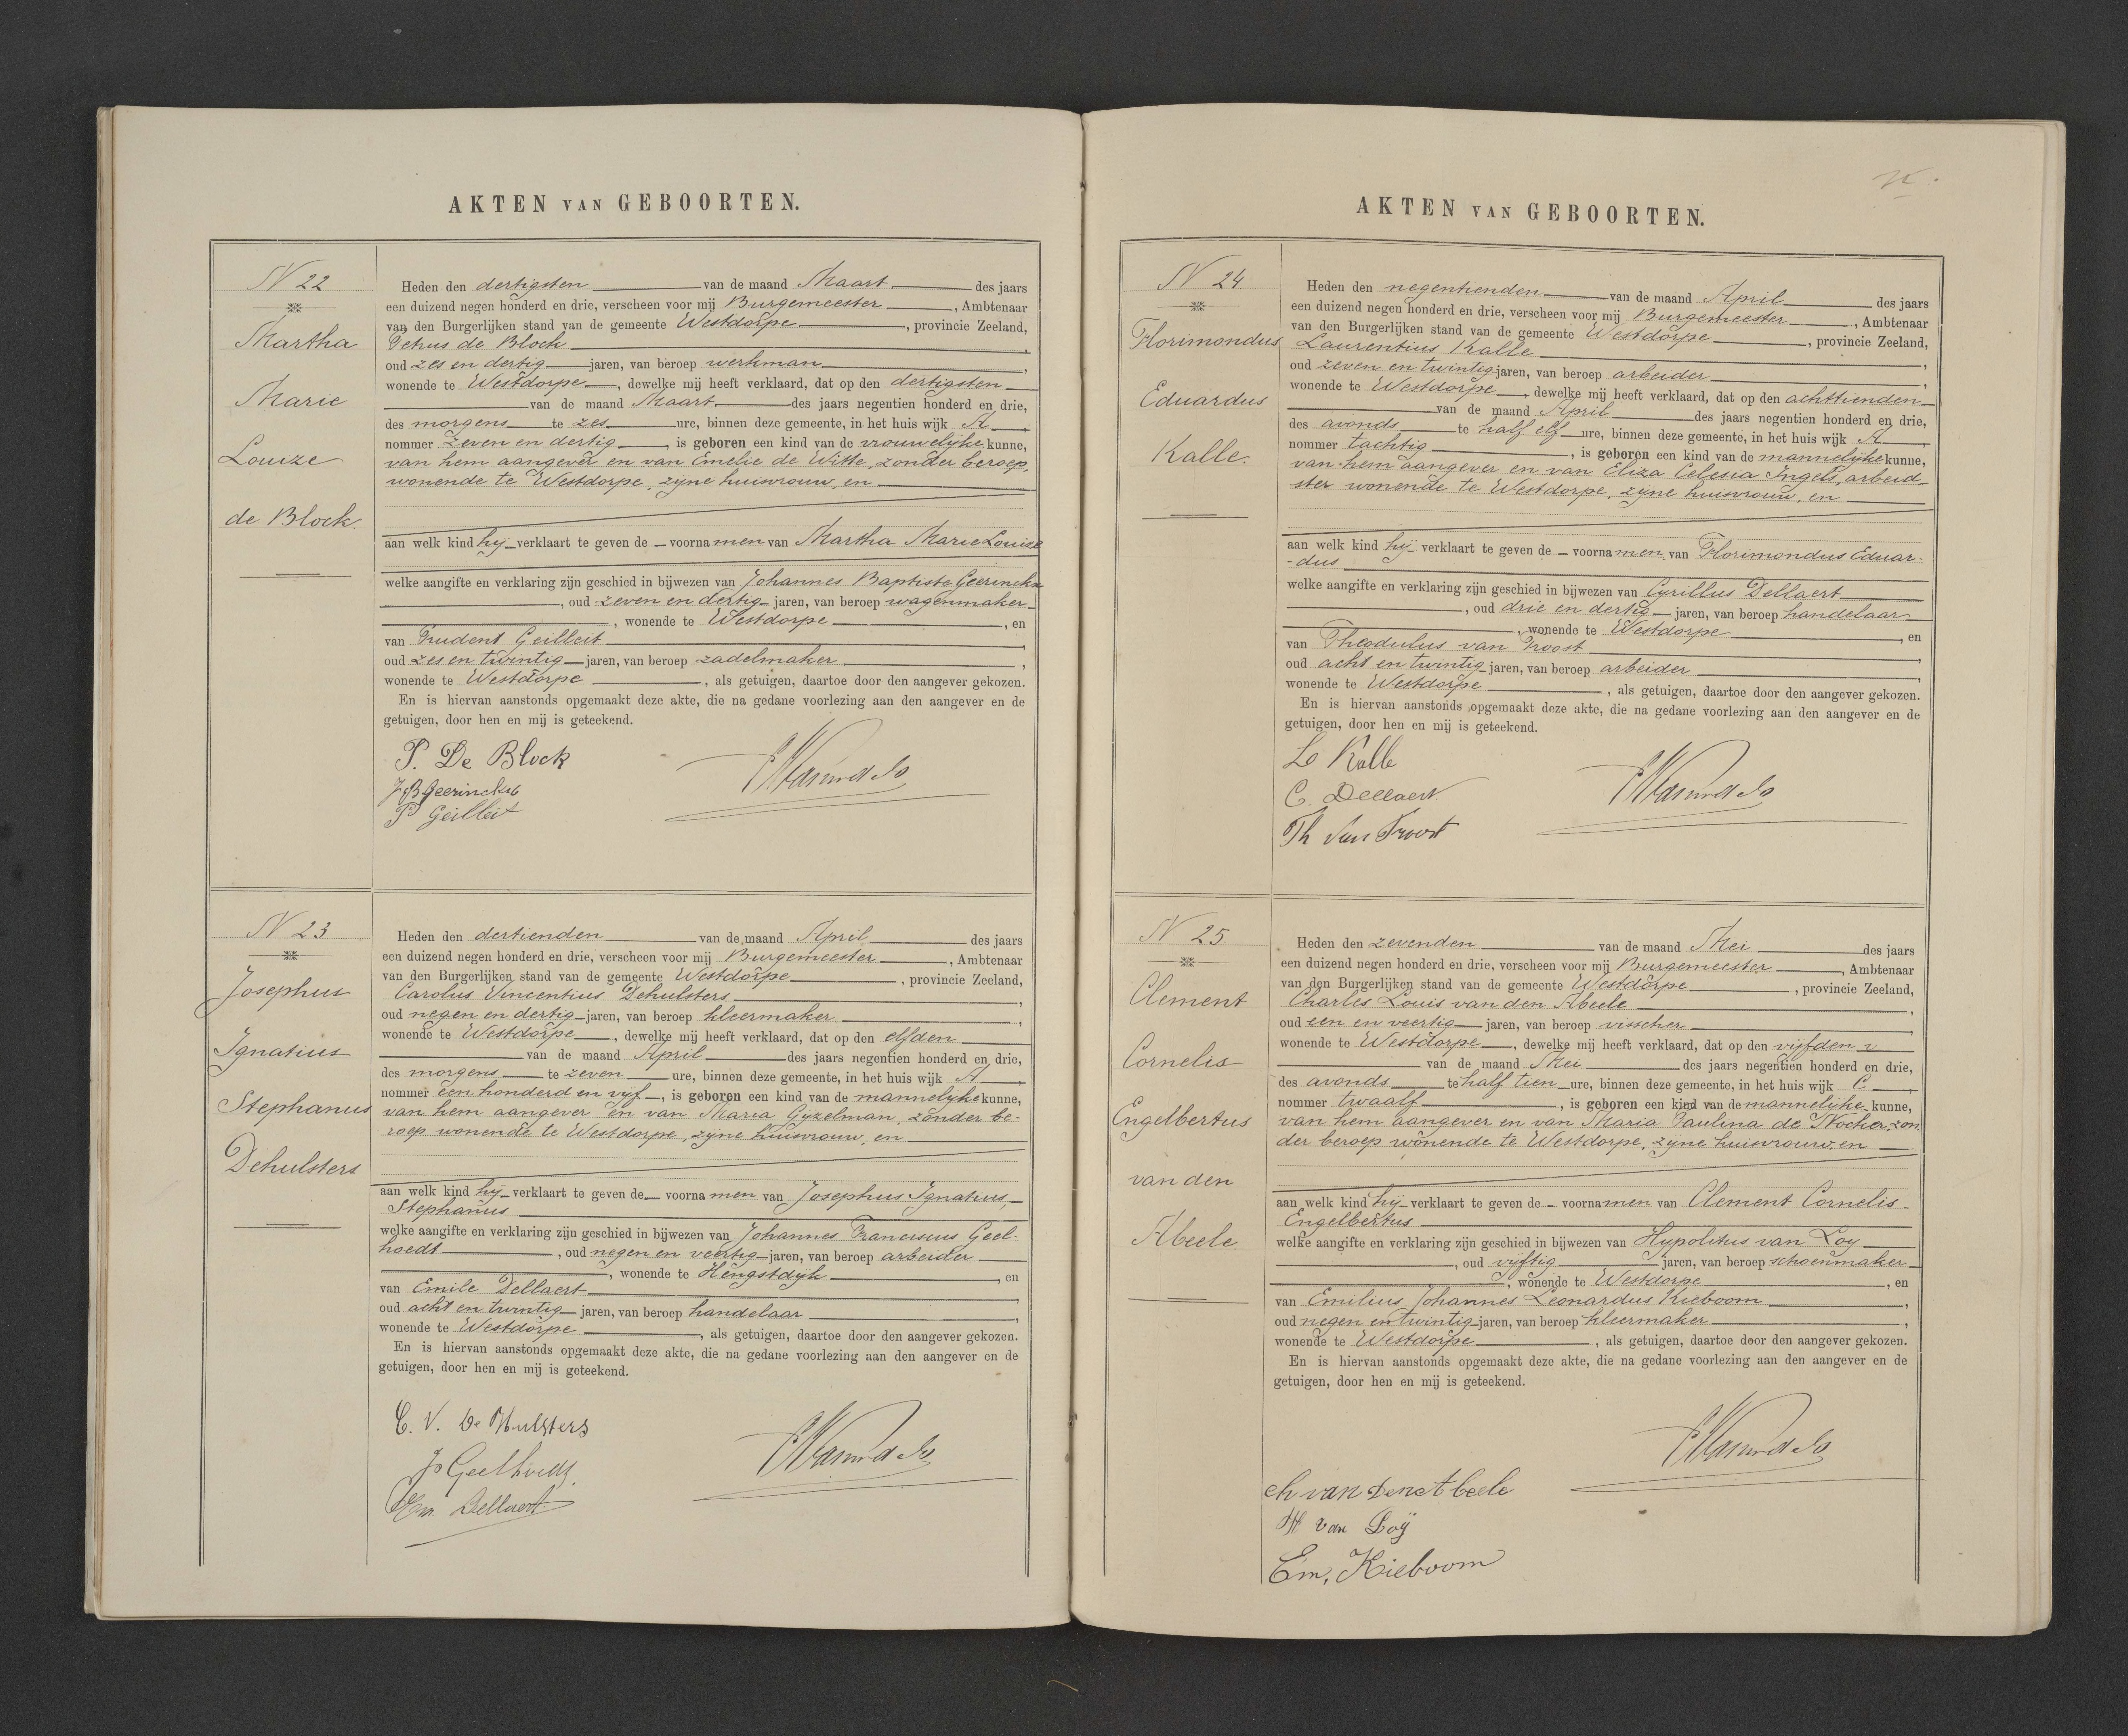 AKTEN VAN GEBOORTEN.
N 22
Martha
Marie
Louize
de Block.
Heden den dertigsten van de maand Maart des jaars
een duizend negen honderd en drie, verscheen voor mij Burgemeester, Ambtenaar
van den Burgerlijken stand van de gemeente Westdorpe, provincie Zeeland,
Petrus de Block,
oud zes en dertig jaren, van beroep werkman,
wonende te Westdorpe, dewelke mij heeft verklaard, dat op den dertigsten
van de maand Maart des jaars negentien honderd en drie,
des morgens te zes ure, binnen deze gemeente, in het huis wijk A,
nommer zeven en dertig, is geboren een kind van de vrouwelijke kunne,
van hem aangever en van Emelie de Witte, zonder beroep,
wonende te Westdorpe, zijne huisvrouw, en
aan welk kind hij verklaart te geven de voornamen van Martha Marie Louize
welke aangifte en verklaring zijn geschied in bijwezen van Johannes Baptiste Geerinckx
, oud zeven en dertig jaren, van beroep wagenmaker
, wonende te Westdorpe, en
van Prudent Geilleit,
oud zes en twintig jaren, van beroep zadelmaker,
wonende te Westdorpe, als getuigen, daartoe door den aangever gekozen.
En is hiervan aanstonds opgemaakt deze akte, die na gedane voorlezing aan den aangever en de
getuigen, door hen en mij is geteekend.
P. De Block
J B Geerinckx
P Geilleit
N 23
Josephus
Ignatius
Stephanus
Dehulsters
Heden den dertienden van de maand April des jaars
een duizend negen honderd en drie, verscheen voor mij Burgemeester, Ambtenaar
van den Burgerlijken stand van de gemeente Westdorpe, provincie Zeeland,
Carolus Vincentius Dehulsters,
oud negen en dertig jaren, van beroep kleermaker,
wonende te Westdorpe, dewelke mij heeft verklaard, dat op den elfden
van de maand April des jaars negentien honderd en drie,
des morgens te zeven ure, binnen deze gemeente, in het huis wijk A,
nommer een honderd en vijf, is geboren een kind van de mannelijke kunne,
van hem aangever en van Maria Gijzelman, zonder be-
roep wonende te Westdorpe, zijne huisvrouw, en
aan welk kind hij verklaart te geven de voornamen van Josephus Ignatius,
Stephanus
welke aangifte en verklaring zijn geschied in bijwezen van Johannes Franciscus Geel-
hoedt, oud negen en veertig jaren, van beroep arbeider
, wonende te Hengstdijk, en
van Emile Dellaert,
oud acht en twintig jaren, van beroep handelaar,
wonende te Westdorpe, als getuigen, daartoe door den aangever gekozen.
En is hiervan aanstonds opgemaakt deze akte, die na gedane voorlezing aan den aangever en de
getuigen, door hen en mij is geteekend.
C. V. De Hulsters
J Geelhoedt
Em. Dellaert
AKTEN VAN GEBOORTEN.
N 24
Florimondus
Eduardus
Kalle.
Heden den negentienden van de maand April des jaars
een duizend negen honderd en drie, verscheen voor mij Burgemeester, Ambtenaar
van den Burgerlijken stand van de gemeente Westdorpe, provincie Zeeland,
Laurentius Kalle,
oud zeven en twintig jaren, van beroep arbeider,
wonende te Westdorpe, dewelke mij heeft verklaard, dat op den achttienden
van de maand April des jaars negentien honderd en drie,
des avonds te half elf ure, binnen deze gemeente, in het huis wijk A,
nommer tachtig, is geboren een kind van de mannelijke kunne,
van hem aangever en van Eliza Celesia Ingels, arbeid-
ster wonende te Westdorpe, zijne huisvrouw, en
aan welk kind hij verklaart te geven de voornamen van Florimondus Eduar-
-dus
welke aangifte en verklaring zijn geschied in bijwezen van Cyrillus Dellaert
, oud drie en dertig jaren, van beroep handelaar
, wonende te Westdorpe, en
van Theodulus van Troost,
oud acht en twintig jaren, van beroep arbeider,
wonende te Westdorpe, als getuigen, daartoe door den aangever gekozen.
En is hiervan aanstonds opgemaakt deze akte, die na gedane voorlezing aan den aangever en de
getuigen, door hen en mij is geteekend.
L Kalle
C. Dellaert.
Th Van Troost
N 25
Clement
Cornelis
Engelbertus
van den
Abeele.
Heden den zevenden van de maand Mei des jaars
een duizend negen honderd en drie, verscheen voor mij Burgemeester, Ambtenaar
van den Burgerlijken stand van de gemeente Westdorpe, provincie Zeeland,
Charles Louis van den Abeele,
oud een en veertig jaren, van beroep visscher,
wonende te Westdorpe, dewelke mij heeft verklaard, dat op den vijfden
van de maand Mei des jaars negentien honderd en drie,
des avonds te half tien ure, binnen deze gemeente, in het huis wijk C,
nommer twaalf, is geboren een kind van de mannelijke kunne,
van hem aangever en van Maria Paulina de Nocker, zon
der beroep wonende te Westdorpe, zijne huisvrouw, en
aan welk kind hij verklaart te geven de voornamen van Clement Cornelis
Engelbertus
welke aangifte en verklaring zijn geschied in bijwezen van Hypolitus van Loy
, oud vijftig jaren, van beroep schoenmaker
, wonende te Westdorpe, en
van Emilius Johannes Leonardus Kieboom,
oud negen en twintig jaren, van beroep kleermaker,
wonende te Westdorpe, als getuigen, daartoe door den aangever gekozen.
En is hiervan aanstonds opgemaakt deze akte, die na gedane voorlezing aan den aangever en de
getuigen, door hen en mij is geteekend.
ch van Den Abeele
H van Loÿ
Em. Kieboom